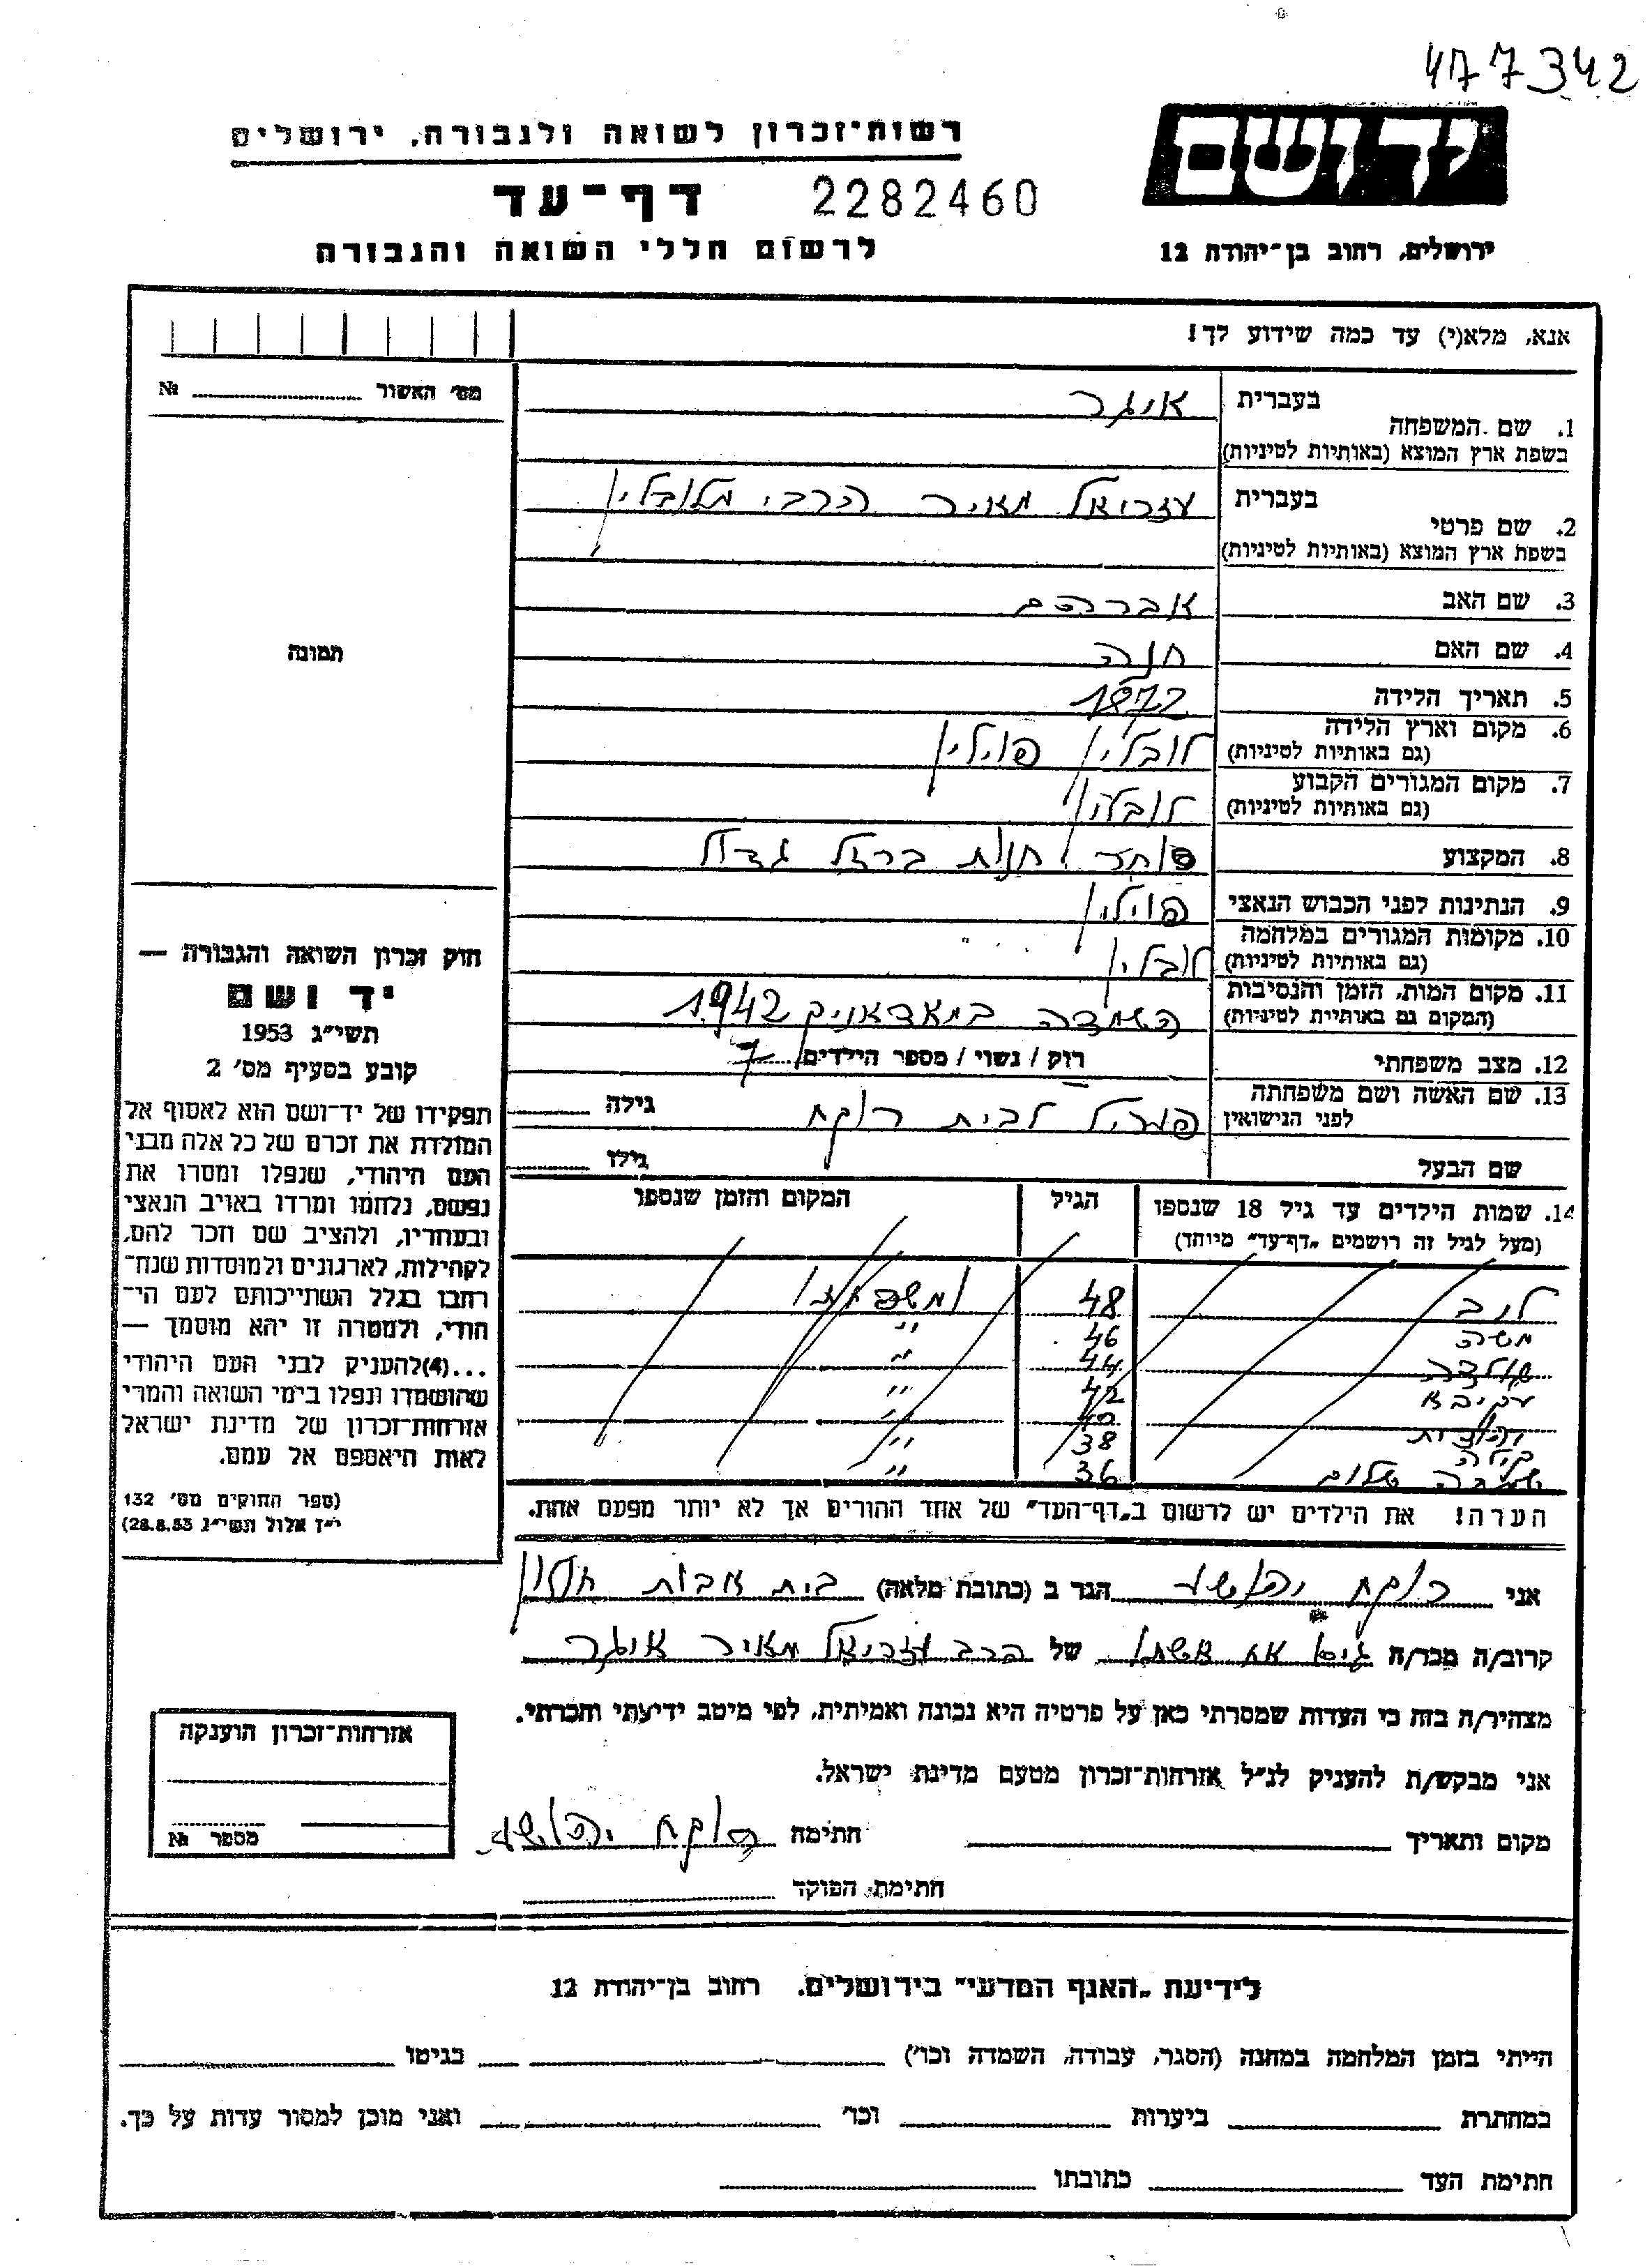 477342
יד ושם
רשות־זכרון לשואה ולגבורה, ירושלים
דף־עד 2282460
לרשום חללי השואה והגבורה
ירושלים, רחוב בן־יהודה 12
אנא, מלא(י) עד כמה שידוע לך!
מס׳ האשור №
תמונה
1. שם המשפחה בעברית איגר
בשפת ארץ המוצא (באותיות לטיניות)
2. שם פרטי בעברית עזריאל מאיר הרבי מלובלין
בשפת ארץ המוצא (באותיות לטיניות)
3. שם האב אברהם
4. שם האם חנה
5. תאריך הלידה 1872
6. מקום וארץ הלידה לובלין פוילין
(גם באותיות לטיניות)
7. מקום המגורים הקבוע לובלין
(גם באותיות לטיניות)
8. המקצוע סוחר חנות ברזל גדול
9. הנתינות לפני הכבוש הנאצי פוילין
10. מקומות המגורים במלחמה לובלין
(גם באותיות לטיניות)
11. מקום המות, הזמן והנסיבות השמדה במאדאניק 1942
(המקום גם באותיות לטיניות)
12. מצב משפחתי רוק / נשוי / מספר הילדים 7
13. שם האשה ושם משפחתה לפני הנישואין לבית רוקח גילה
שם הבעל גילו
14. שמות הילדים עד גיל 18 שנספו הגיל המקום והזמן שנספו
(מעל לגיל זה רושמים „דף־עד” מיוחד)
לוב 48
משה 46 "
44 "
עקיבא 42 "
יהודית 40
38 "
שלום 36 "
הערה! את הילדים יש לרשום ב„דף־העד” של אחד ההורים אך לא יותר מפעם אחת.
חוק זכרון השואה והגבורה —
יד ושם
תשי״ג 1953
קובע בסעיף מס׳ 2
תפקידו של יד־ושם הוא לאסוף אל
המולדת את זכרם של כל אלה מבני
העם היהודי, שנפלו ומסרו את
נפשם, נלחמו ומרדו באויב הנאצי
ובעוזריו, ולהציב שם וזכר להם,
לקהילות, לארגונים ולמוסדות שנח־
רבו בגלל השתייכותם לעם הי־
הודי, ולמטרה זו יהא מוסמך —
...(4)להעניק לבני העם היהודי
שהושמדו ונפלו בימי השואה והמרי
אזרחות־זכרון של מדינת ישראל
לאות היאספם אל עמם.
(ספר החוקים מס׳ 132
י״ז אלול תשי״ג 28.8.53)
אני רוקח יהושע הגר ב (כתובת מלאה) בית אבות חולון
קרוב/ה מכר/ה גיס אח אשתו של הרב עזריאל מאיר איגר
מצהיר/ה בזה כי העדות שמסרתי כאן על פרטיה היא נכונה ואמיתית, לפי מיטב ידיעתי והכרתי.
אני מבקש/ת להעניק לנ״ל אזרחות־זכרון מטעם מדינת ישראל.
מקום ותאריך חתימה רוקח יהושע
חתימת הפוקד
אזרחות־זכרון הוענקה
מספר №
לידיעת „האגף המדעי” בירושלים. רחוב בן־יהודה 12
הייתי בזמן המלחמה במחנה (הסגר, עבודה, השמדה וכו׳) בגיטו
במחתרת ביערות וכו׳ ואני מוכן למסור עדות על כך.
חתימת העד כתובתו